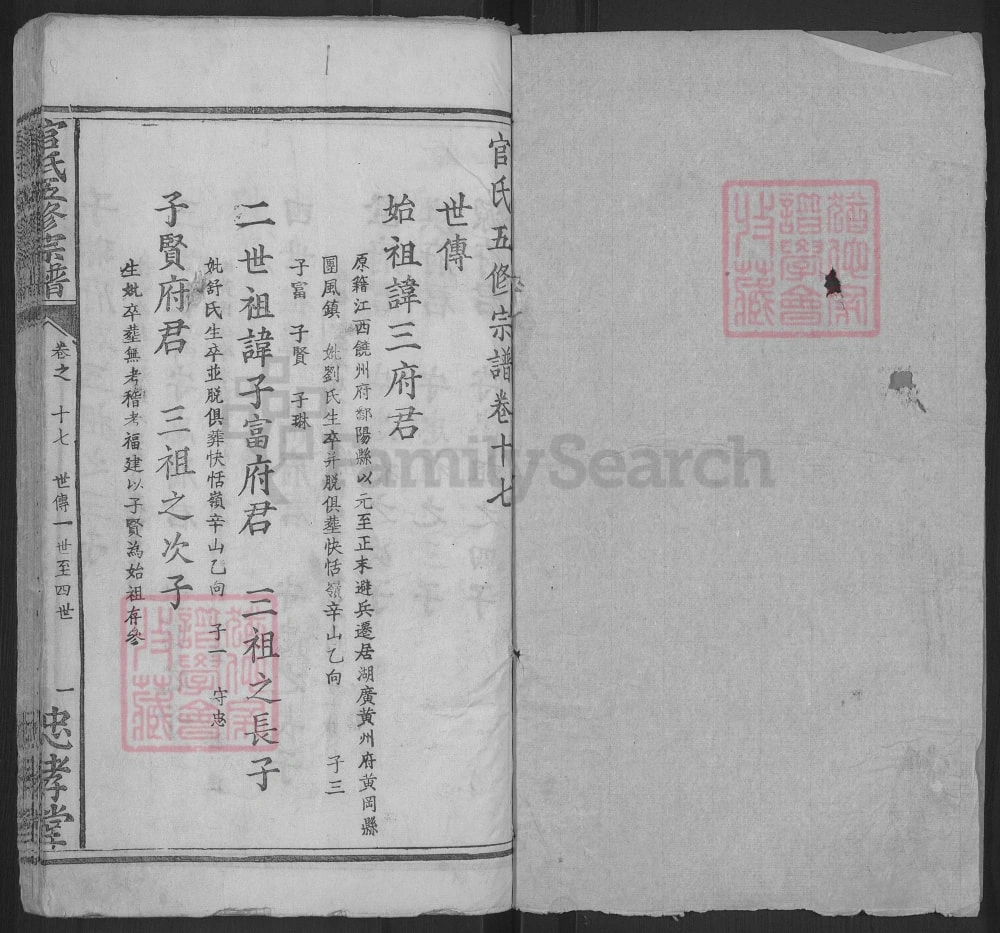 官氏五修宗譜卷十七
世傳
始祖諱三府君
原籍江西饒州府鄱陽縣以元至正末避兵遷居湖廣黃州府黃岡縣
團風鎮 妣劉氏生卒并脱俱塟快恬嶺辛山乙向 子三
子富 子賢 子琳
二世祖諱子富府君 三祖之長子
妣舒氏生卒並脱俱葬快恬嶺辛山乙向 子一 守忠
子賢府君 三祖之次子
生妣卒塟無考稽考福建以子賢為始祖存叅
官氏五修宗譜 卷之十七 世傳一世至四世 一 忠孝堂
FamilySearch